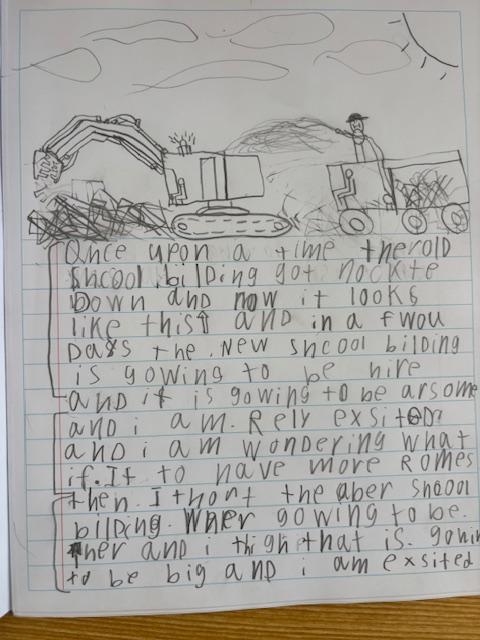 Once upon a time therold
shcool bilding got nockte
Down and now it looks
like this↑ and in a fwou
Days the New shcool bilding
is gowing to be hire
and it is gowing to be arsome
and i am. Rely exsitED
and i am wondering what
if. It to have more Romes
then I thort the aber shcool
bilding. Wher gowing to be.
ther and i thigh that is. gowin
to be big and i am exsited